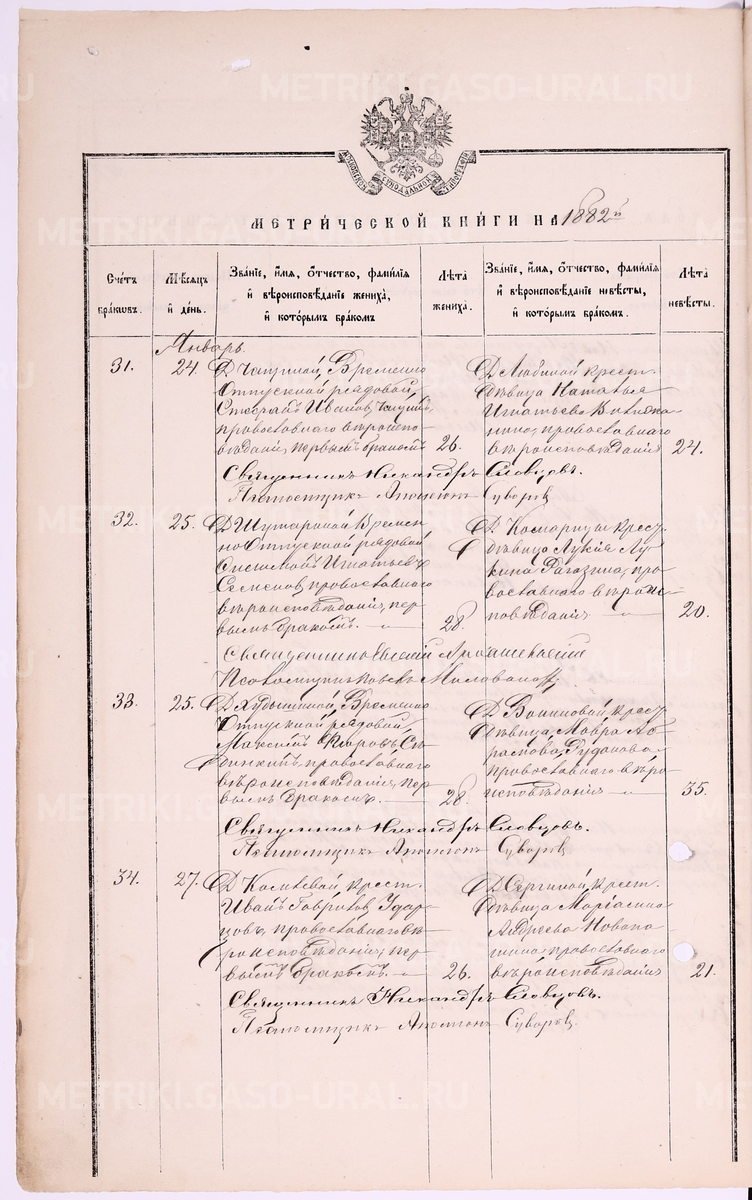 МЕТРИ́ЧЕСКОЙ КНИ́ГИ НА 1882й
Счетъ браковъ.
Мѣсяцъ и день.
Званіе, имя, отчество, фамилія и вѣроисповѣданіе жениха, и которымъ бракомъ
Лѣта жениха.
Званіе, имя, отчество, фамилія и вѣроисповѣданіе невѣсты, и которымъ бракомъ.
Лѣта невѣсты.
Январь.
31.
24.
Д. Чапуриной, Временно
Отпускной рядовой,
Стефанъ Ивановъ
православнаго вѣроиспо-
вѣданія, первымъ бракомъ
26.
Д. Любиной крест.
дѣвица Наталья
Игнатьева
православнаго
вѣроисповѣданія
24.
Священникъ Никандръ Словцовъ.
Псаломщикъ Суворовъ
32.
25.
Д. Времен-
но Отпускной рядовой
Игнатьевъ
Семеновъ, православнаго
вѣроисповѣданія, пер-
вымъ бракомъ.
28.
Д. Комарицы крест.
дѣвица Лукія Лу-
кина Рагозина, пра-
вославнаго вѣроис-
повѣданія
20.
Священникъ
33.
25.
Временно
Отпускной рядовой,
Максимъ
православнаго
вѣроисповѣданія, пер-
вымъ бракомъ.
28.
Д. Воиновой крест.
дѣвица, Мавра Аб-
рамова, Рудакова
православнаго вѣро-
исповѣданія
35.
Священникъ Никандръ Словцовъ.
Псаломщикъ Суворовъ
34.
27.
крест.
Иванъ Гавриловъ Удар-
цовъ, православнаго вѣ-
роисповѣданія, пер-
вымъ бракомъ.
26.
Д. Сергиной, крест.
дѣвица Маріамна
Андреева Новопа-
шина, православнаго
вѣроисповѣданія
21.
Священникъ Никандръ Словцовъ.
Псаломщикъ Суворовъ
METRIKI.GASO-URAL.RU